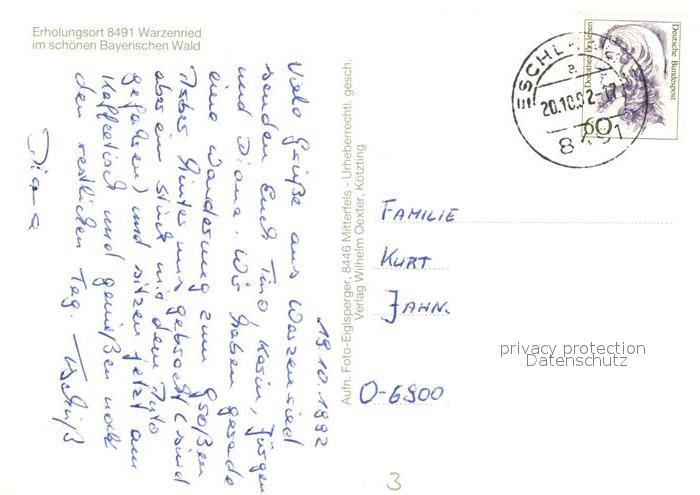 Erholungsort 8491 Warzenried
im schönen Bayerischen Wald
19.10.1992
Viele Grüße aus Warzenried
senden Euch Timo, Karin, Jürgen
und Diana. Wir haben gerade
eine Wanderung zum großen
hinter uns gebracht (sind
aber ein Stück mit dem Auto
gefahren) und sitzen jetzt am
Kaffeetisch und genießen noch
den restlichen Tag. Tschüß
Diana
Aufn. Foto-Eiglsperger, 8446 Mitterfels - Urheberrechtl. gesch.
Verlag Wilhelm Oexter, Kötzting
Deutsche Bundespost
60
ESCHL
a
20.10.92-17
8491
FAMILIE
KURT
JAHN.
O-6900
privacy protection
Datenschutz
3